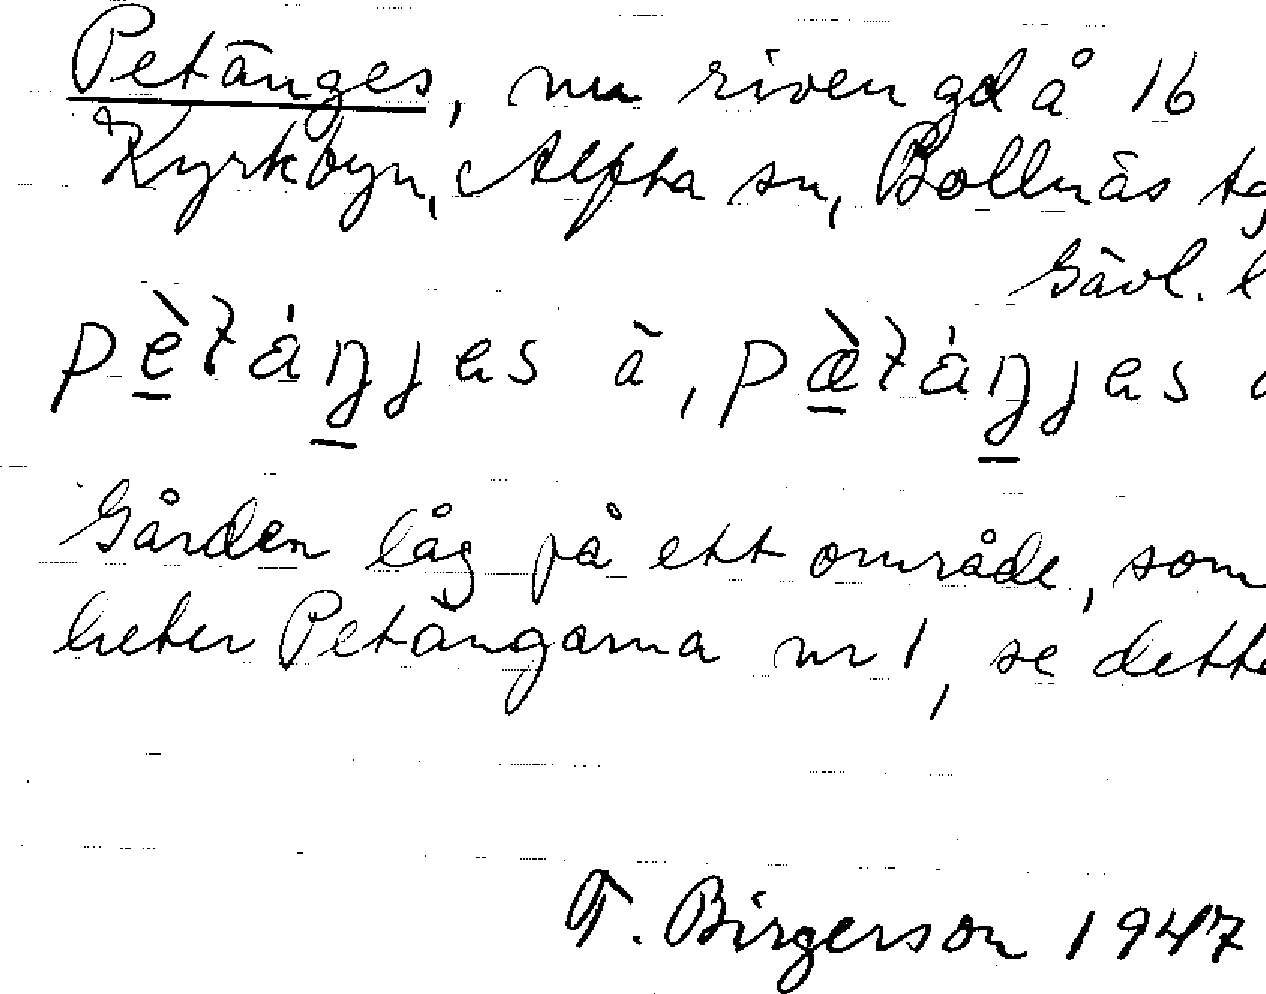 Petänges, nu riven gd å 16
Kyrkbyn, Alfta sn, Bollnäs tg
Gävl. l
pèt̀áŋjes å, pæ̀t̀áŋjes
Gården låg på ett område, som
heter Petängarna nr 1, se detta
T. Birgerson 1947